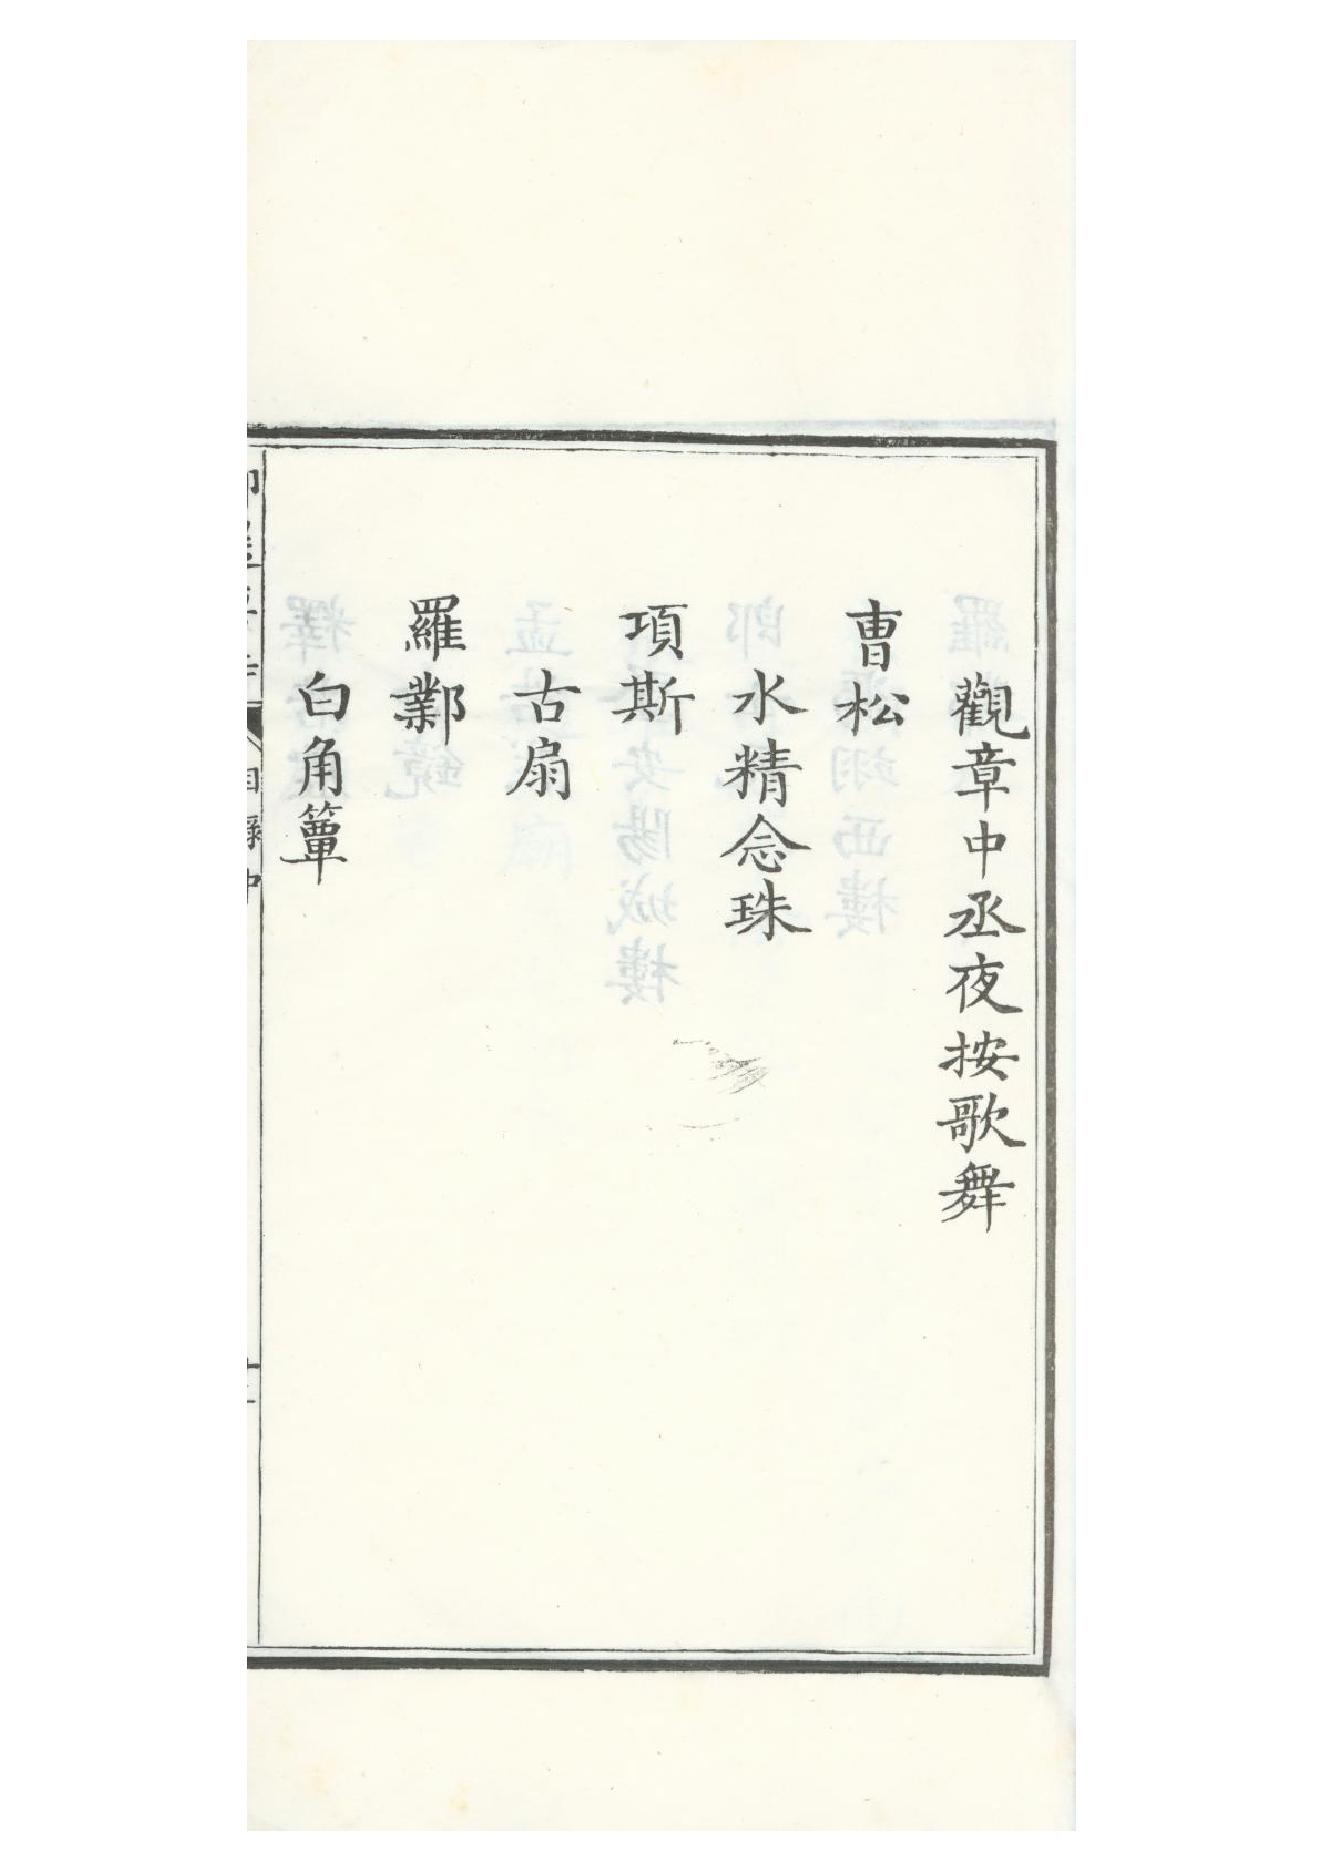 觀章中丞夜按歌舞
曹松
水精念珠
項斯
古扇
羅鄴
白角簟
目錄中